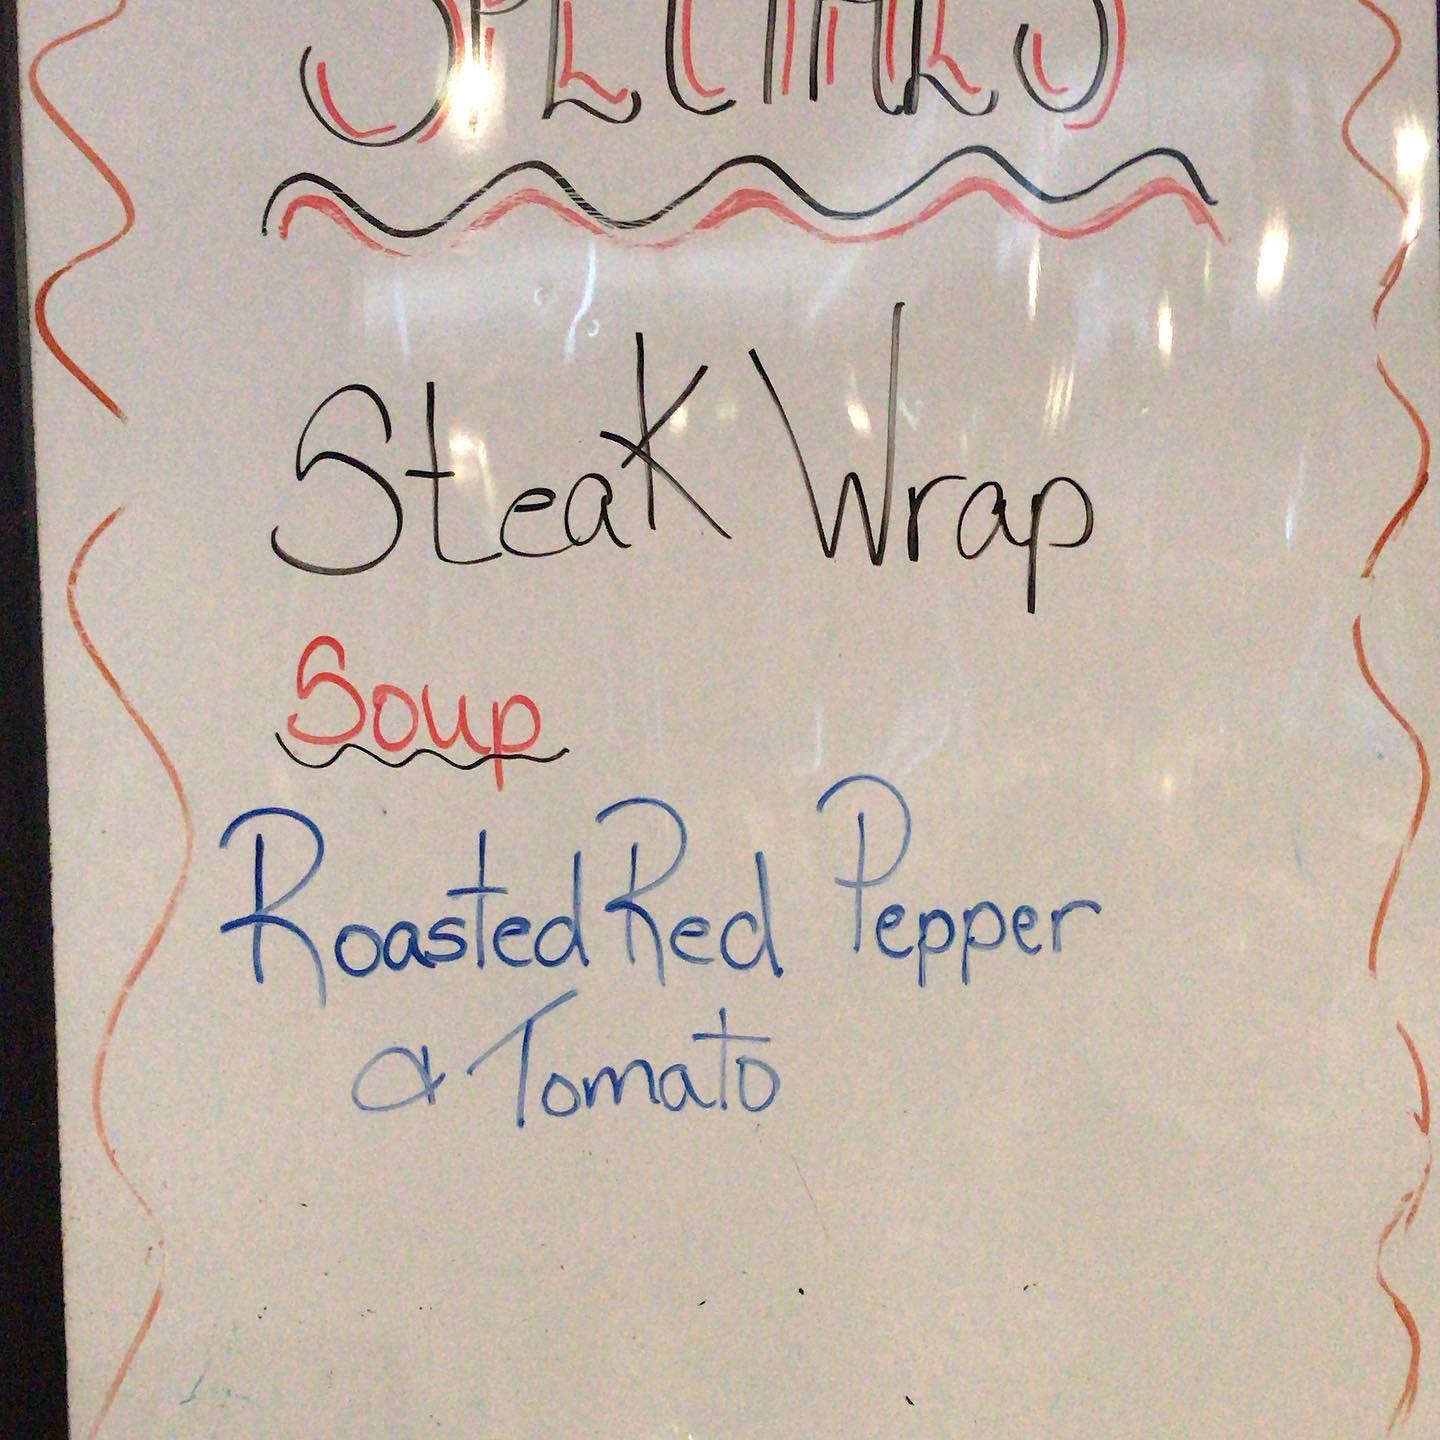 SPECIALS
Steak Wrap
Soup
Roasted Red Pepper
& Tomato